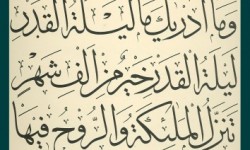 وَمَا أَدْرَىٰكَ مَا لَيْلَةُ الْقَدْرِ
لَيْلَةُ الْقَدْرِ خَيْرٌ مِنْ أَلْفِ شَهْرٍ
تَنَزَّلُ الْمَلَٰئِكَةُ وَالرُّوحُ فِيهَا